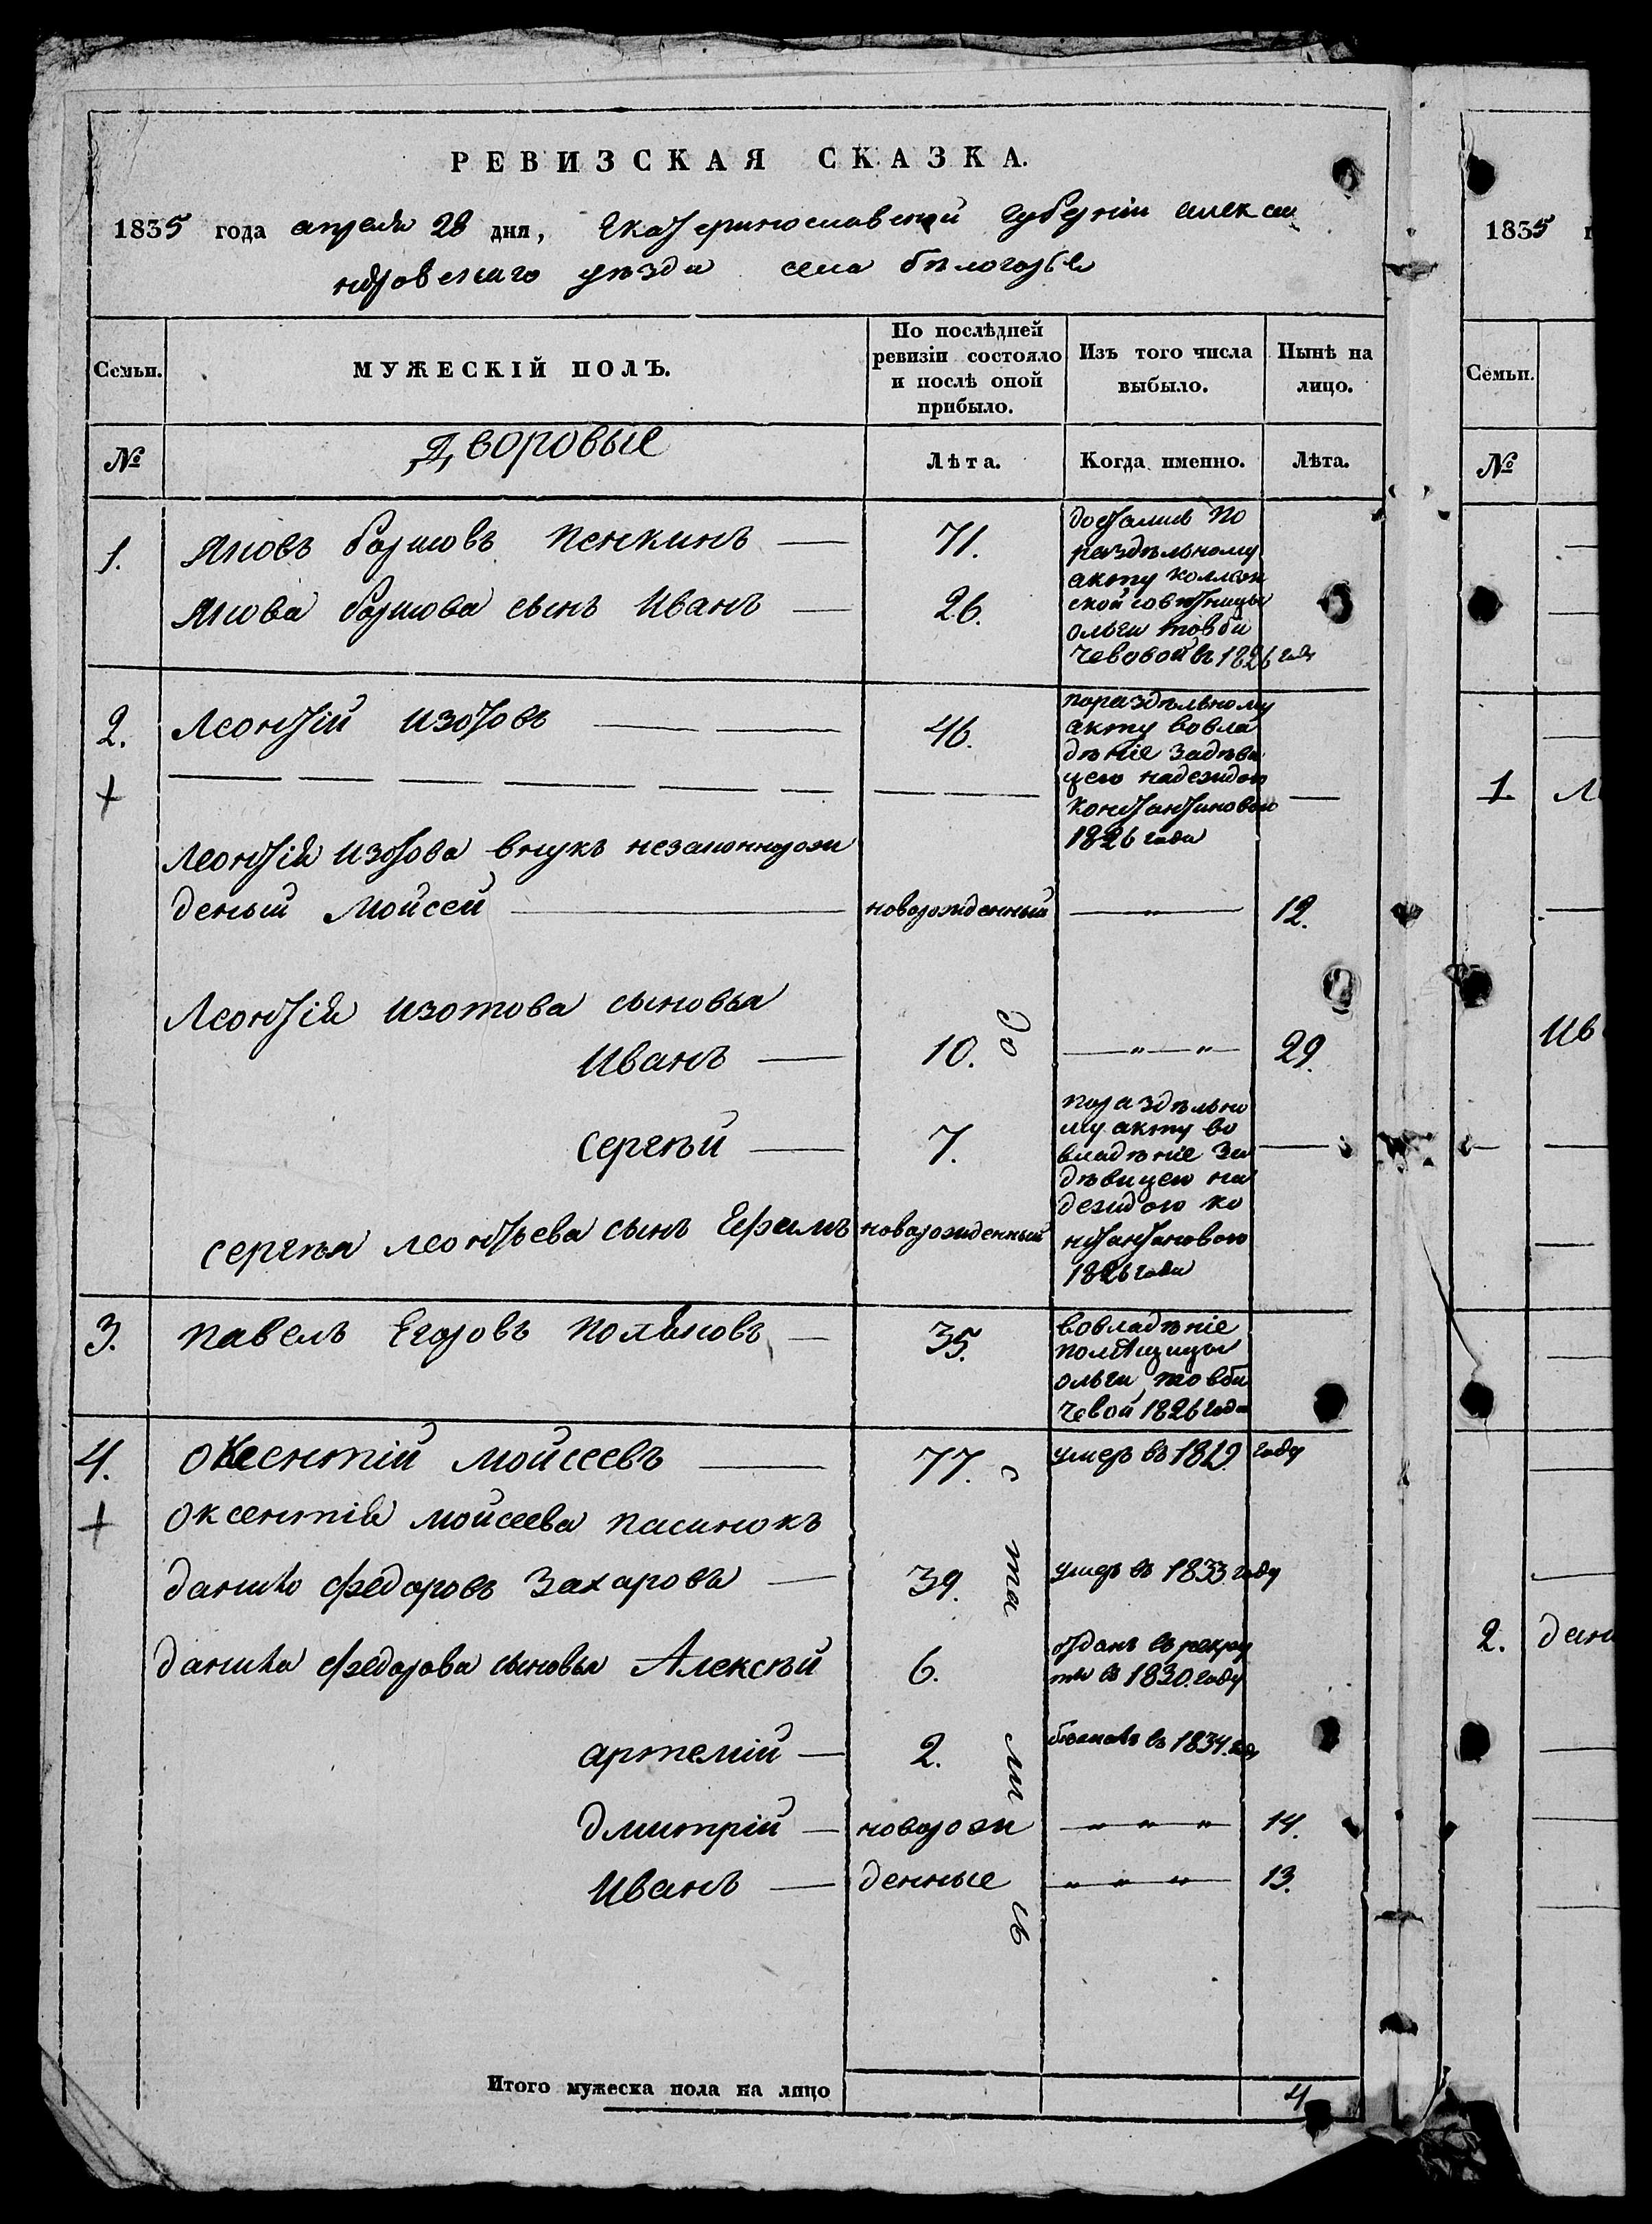 РЕВИЗСКАЯ СКАЗКА.
1835 года апреля 28 дня, Екатеринославской губернии алекса
ндровскаго уѣзда села бѣлогорья
Семьи.
МУЖЕСКІЙ ПОЛЪ.
По послѣдней ревизіи состояло и послѣ оной прибыло.
Изъ того числа выбыло.
Нынѣ на лицо.
№
Дворовые
Лѣта.
Когда именно.
Лѣта.
1. Яковъ Пенкинъ — 71.
Якова сынъ Иванъ — 26.
достались по
раздѣльному
акту коллеж
ской совѣтницы
ольги товби
чевовой въ 1826 году
2. Леонтій изотовъ — 46.
пораздѣльному
акту вовла
дѣніе задѣви
цею надеждою
константиновою
1826 года
+
Леонтія изотова внукъ незаконнорож
деный Мойсей — новорожденный — 12.
Леонтія изотова сыновья
Иванъ — 10. — 29.
сергѣй — 7.
сергѣя леонтьева сынъ Ефимъ новорожденный
пораздѣльно
му акту во
владѣніе за
дѣвицею на
деждою ко
нстантиновою
1826 года
3. павелъ Егоровъ Поляковъ — 35.
вовладѣніе
помѣщицы
ольги товби
чевой 1826 года
4. Оксентій мойсеевъ — 77. умеръ въ 1819. году
+
Оксентія мойсеева пасинокъ
данило федоровъ Захаровъ — 39. умеръ въ 1833 году
данила федорова сыновья Алексѣй 6.
отданъ въ рекру
ты въ 1830. году
артемій — 2. въ 1834. году
дмитрій — новорож — 14.
Иванъ — денные — 13.
до
с
та
ли
сь
Итого мужеска пола на лицо 4
1835
Семьи.
№
1
Ив
2. дан